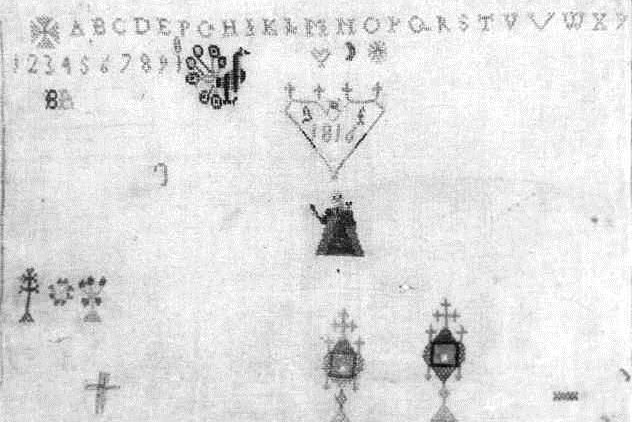 ABCDEFGHIKLMNOPQRSTVUWXY
1234567891
8A
A
1816